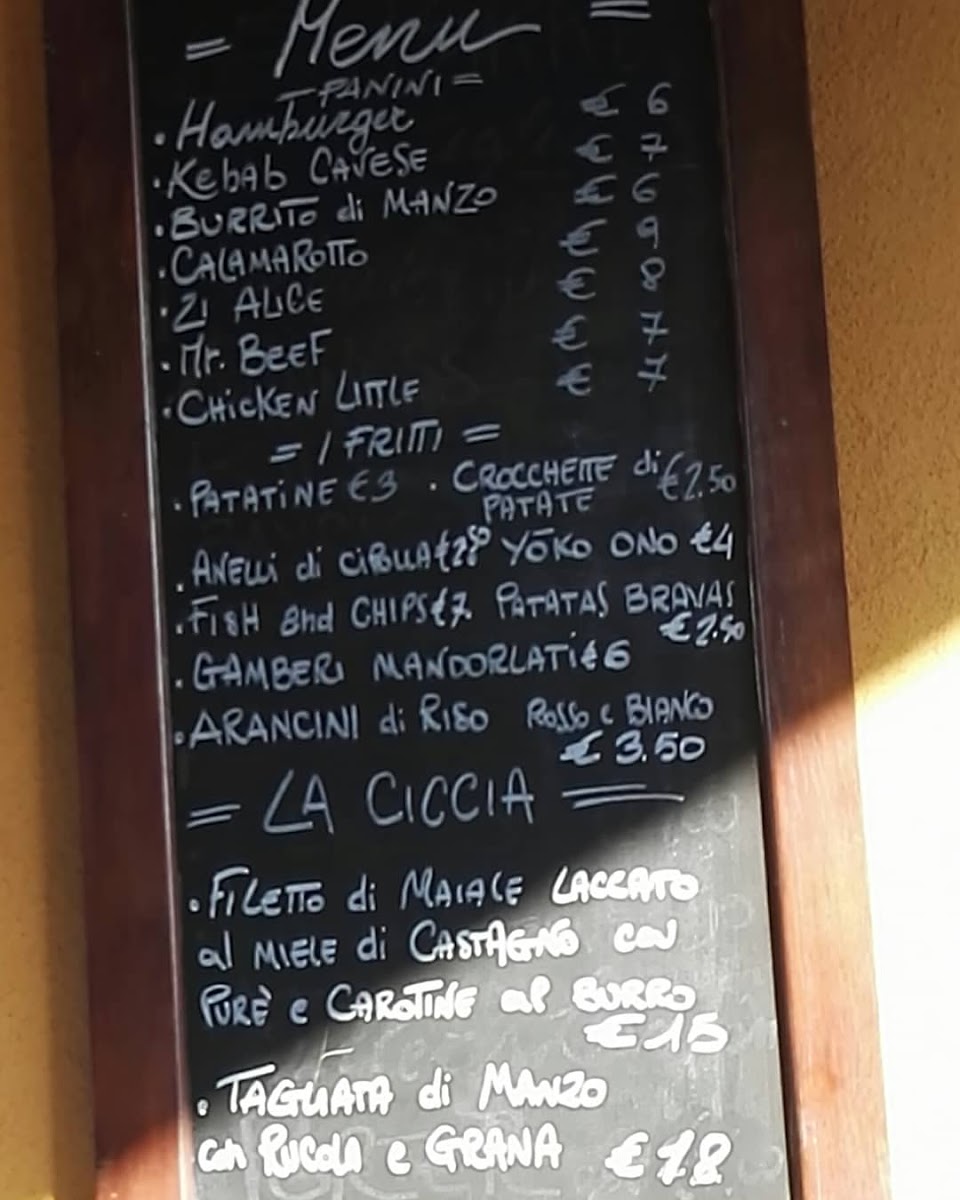 = Menu =
- PANINI =
· Hamburger € 6
· Kebab CAVESE € 7
· BURRITO di MANZO € 6
· CALAMAROTTO € 9
· ZI ALICE € 8
· Mr. BEEF € 7
· CHICKEN LITTLE € 7
= I FRITTI =
· PATATINE €3 · CROCCHETTE di €2.50
PATATE
· ANELLI di CIPOLLA €2.50 YŌKO ONO €4
· FISH and CHIPS €7. PATATAS BRAVAS
€2.50
· GAMBERI MANDORLATI €6
· ARANCINI di RISO ROSSO e BIANCO
€ 3.50
= LA CICCIA =
· FILETTO di MAIALE LACCATO
al MIELE di CASTAGNO con
PURÈ e CAROTINE al BURRO
€15
· TAGLIATA di MANZO
con RUCOLA e GRANA € 18